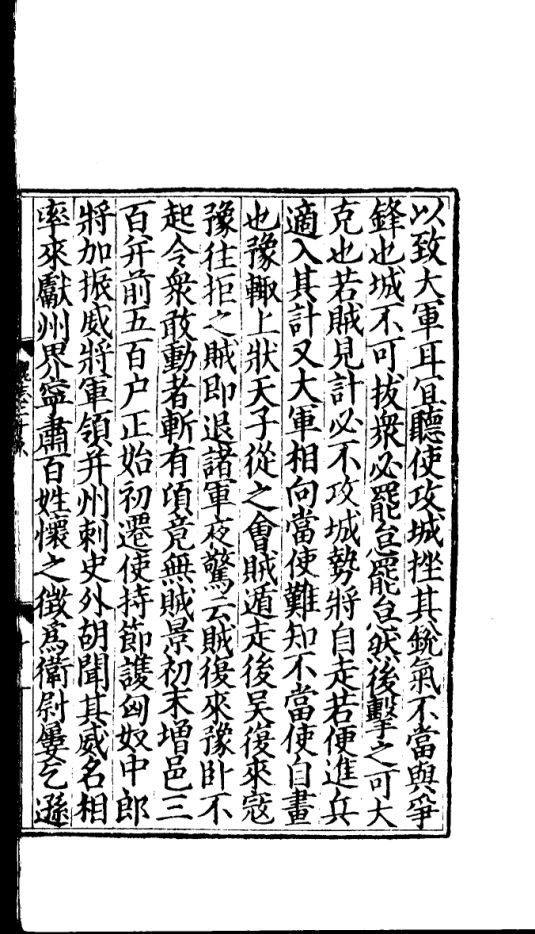 以致大軍耳宜聽使攻城挫其銳氣不當與爭
鋒也城不可拔衆必罷怠罷怠然後擊之可大
克也若賊見計必不攻城勢將自走若便進兵
適入其計又大軍相向當使難知不當使自畫
也豫輙上狀天子從之會賊遁走後吳復來寇
豫往拒之賊即退諸軍夜驚云賊復來豫卧不
起令衆敢動者斬有頃竟無賊景初末增邑三
百并前五百户正始初遷使持節護匈奴中郎
將加振威將軍領并州刺史外胡聞其威名相
率來獻州界寧肅百姓懷之徵爲衛尉屢乞遜